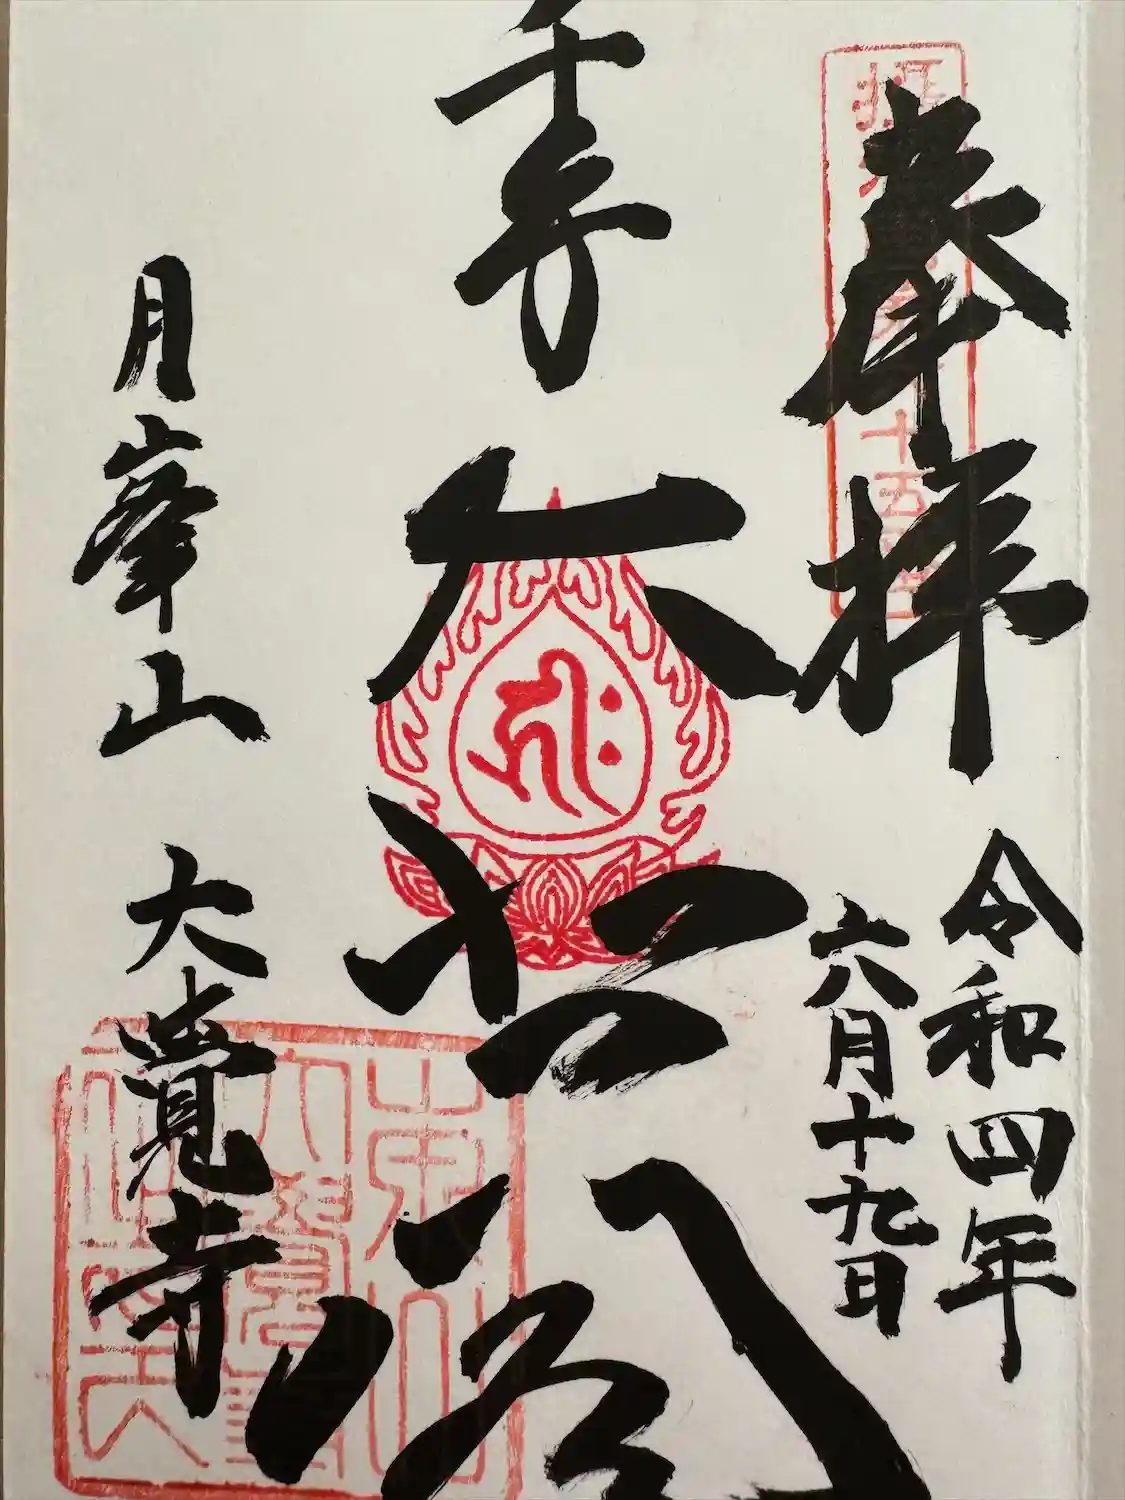 奉拝
令和四年
六月十九日
千手大悲閣
月峯山 大覺寺